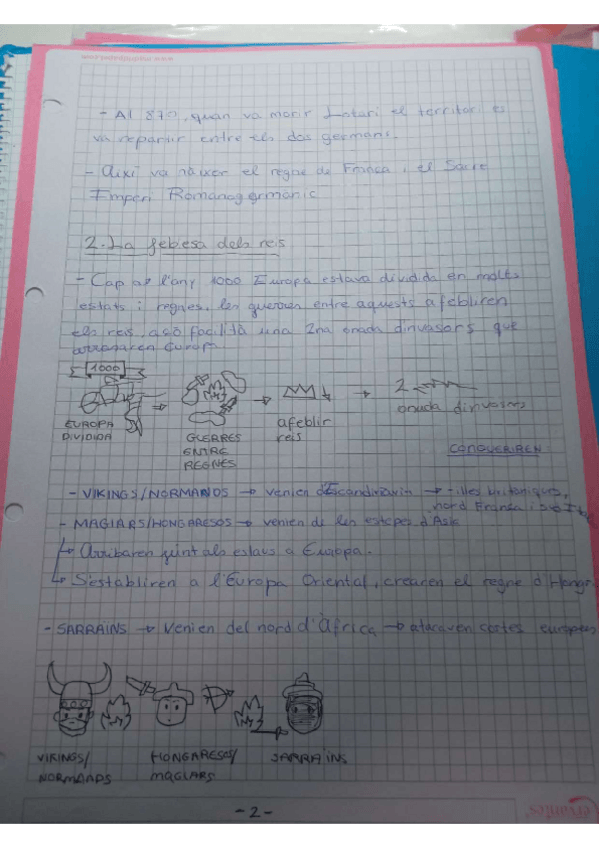 - Al 870, quan va morir Lotari el territori es
va repartir entre els dos germans.
- Així va nàixer el regne de França i el Sacre
Imperi Romanogermànic
2. La feblesa dels reis
- Cap a l'any 1000 Europa estava dividida en molts
estats i regnes, les guerres entre aquests afebliren
els reis, açò facilità una 2na onada d'invasors que
arrasaren Europa
1000
EUROPA DIVIDIDA
GUERRES ENTRE REGNES
afeblir reis
2
onada d'invasors
CONQUERIREN
- VIKINGS/NORMANDS → venien d'Escandinàvia → illes britàniques,
nord França i
- MAGIARS/HONGARESOS → venien de les estepes d'Àsia
↳ Arribaren junt als eslaus a Europa.
↳ S'establiren a l'Europa Oriental, crearen el regne d'Hongr
- SARRAINS → Venien del nord d'Àfrica → atacaven costes europees
VIKINGS/
NORMANDS
HONGARESOS/
MAGIARS
SARRAINS
- 2 -